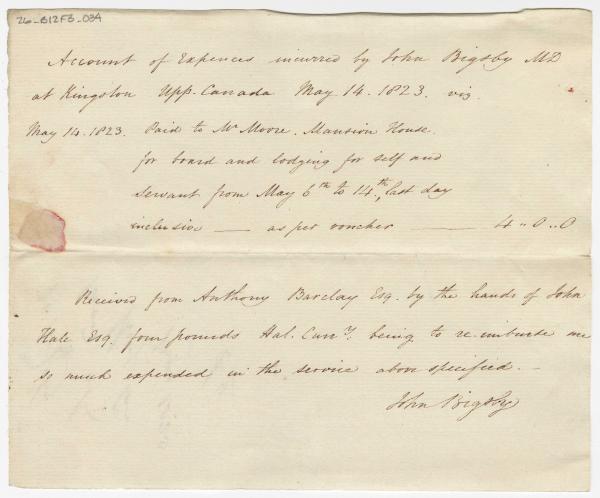 26_B12F3_034
Account of Expences incurred by John Bigsby MD
at Kingston Upp. Canada May 14. 1823. viz.
May 14. 1823. Paid to Mr Moore. Mansion House.
for board and lodging for self and
servant from May 6th to 14th, last day
inclusive — as per voucher — 4 " 0 " 0
Received from Anthony Barclay Esq. by the hands of John
Hale Esq. four pounds Hal. Curry. being to re-imburse me
so much expended in the service above specified. —
John Bigsby